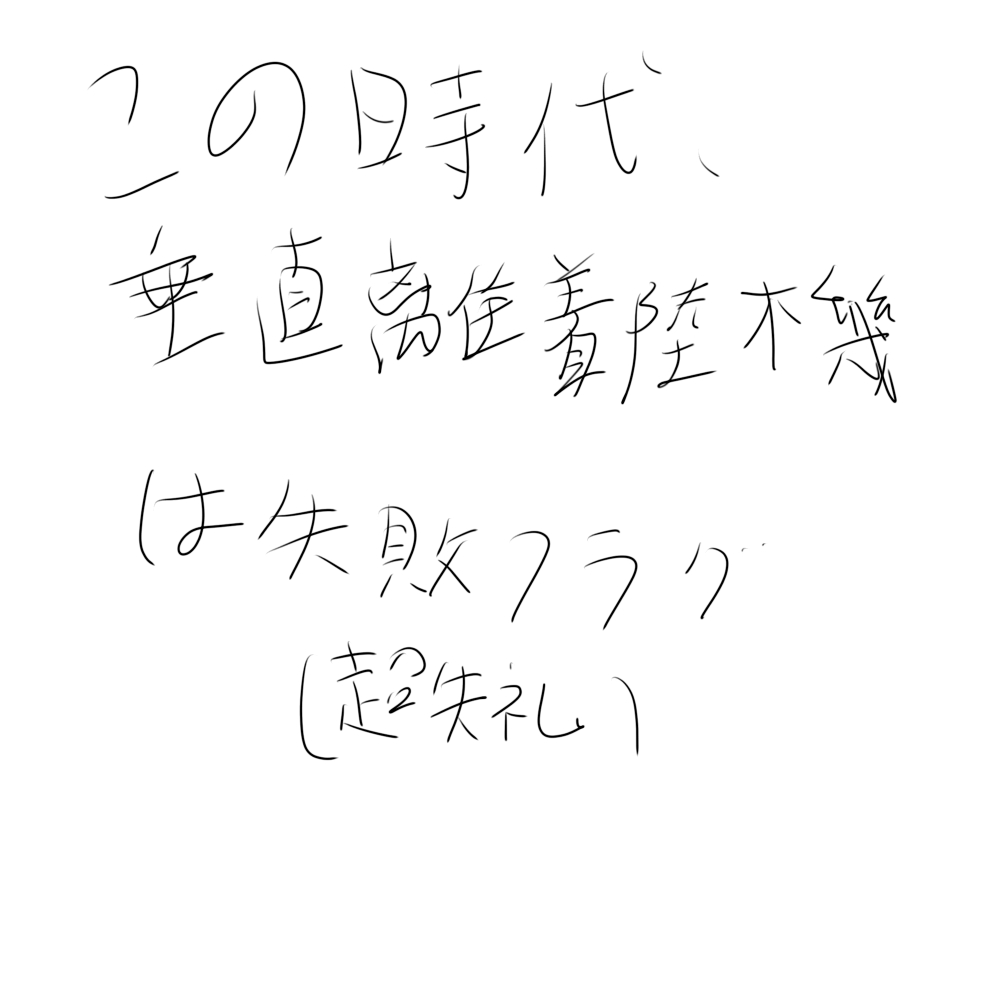 この時代、
垂直離着陸機
は失敗フラグ
(超失礼)